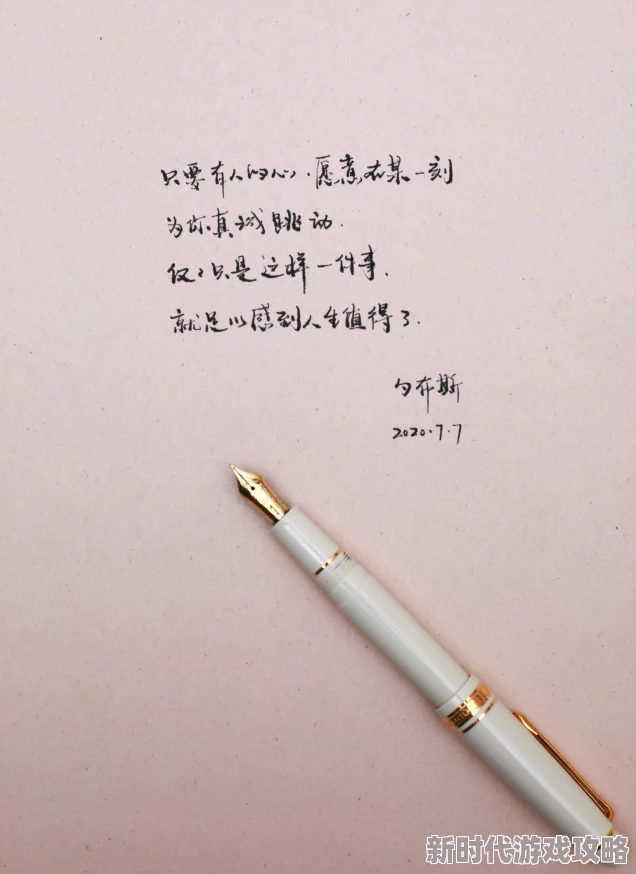 只要有人的心,愿意在某一刻
为你真诚跳动.
仅々只是这样一件事,
就足以感到人生值得了.
勺布斯
2020.7.7
新时代游戏攻略